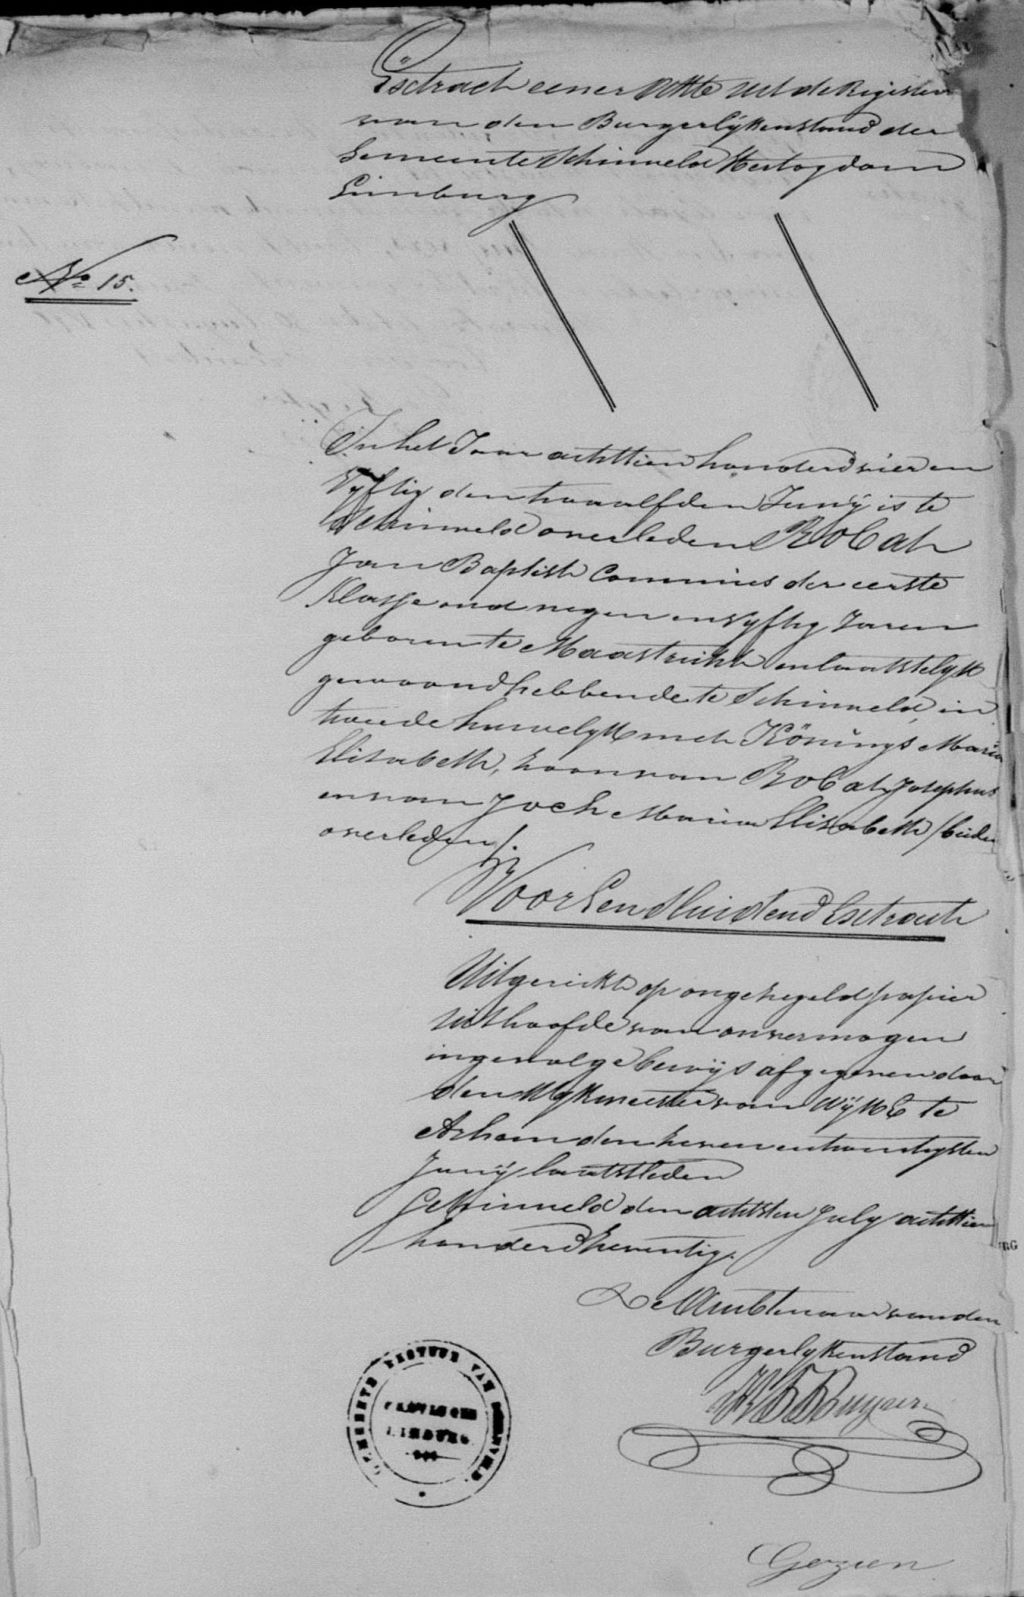 Esctract eener Akte uit de Registers
van den Burgerlÿkenstand der
Gemeinte Schinveld Hertogdom
Limburg
No 15.
In het Jaar achttien honderd vier en
Vyftig den twaalfden Junÿ is te
Schinveld overleden Robat
Jan Baptist Commies der eerste
Klasse oud negen en vyftig Jaren
geboren te Maastricht en laatstelyk
gewoond hebbende te Schinveld, in
tweede huwelyk met Könings Maria
Elisabeth, zoon van Robat Josephus
en van Joch Maria Elisabeth /beide
overleden/.
Voor Eensluidend Esctract
Uitgereikt op ongezegeld papier
uit hoofde van onvermogen
ingevolge bewÿs afgegeven door
den Wykmeester van Wÿk E te
Arhem den zeven en twintigsten
Junÿ laatstleden
Schinveld den achtsten July achttien
honderd zeventig.
De Ambtenaar van den
Burgerlykenstand
GEMEENTE BESTUUR VAN SCHINVELD
PROVINCIE
LIMBURG
Gezien